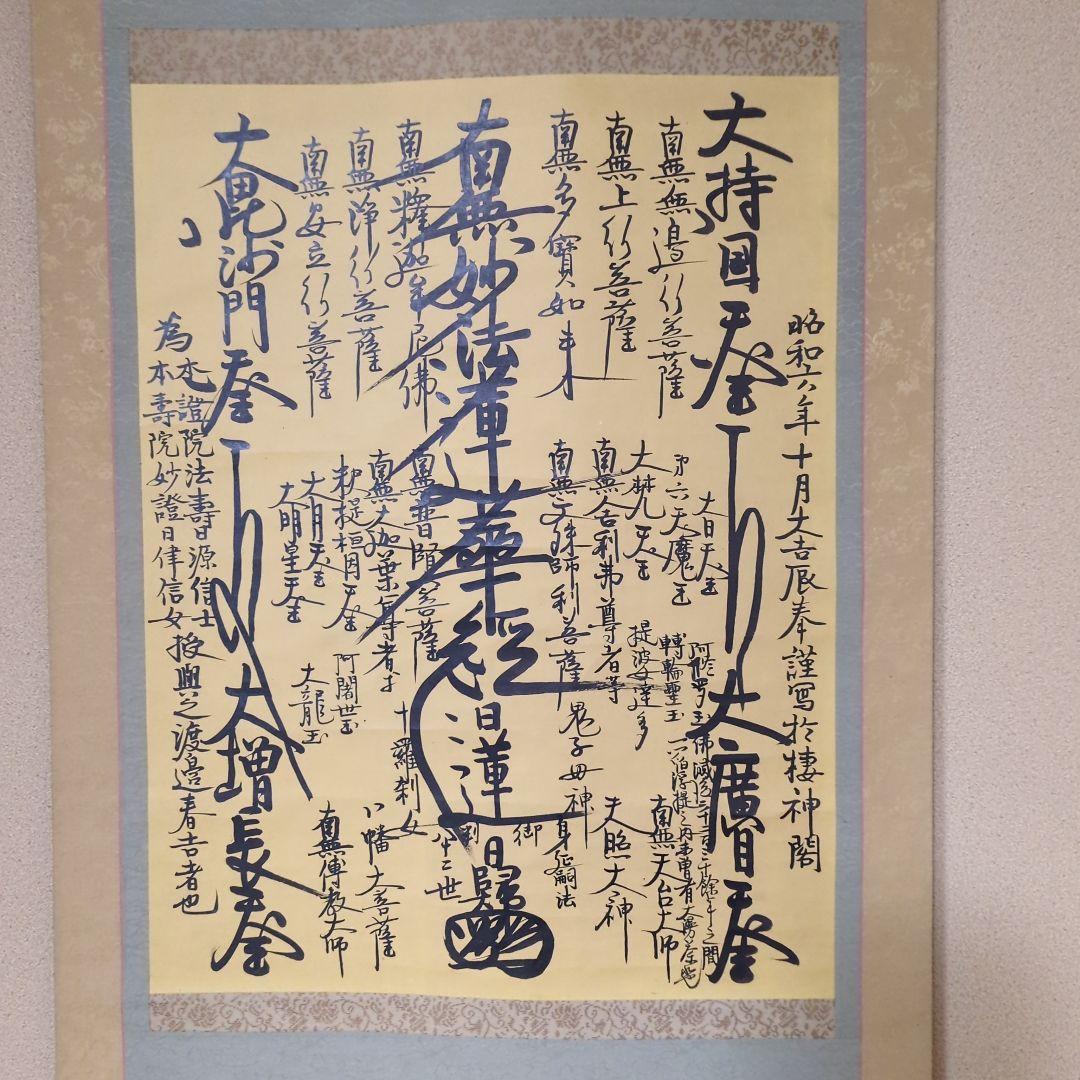 昭和六八年十月大吉辰奉謹写於棲神閣
大持国天王
大廣目天王
南無無邊行菩薩
南無上行菩薩
南無多寶如来
南無妙法蓮華経
日蓮
南無釋迦牟尼佛
南無浄行菩薩
南無安立行菩薩
大毘沙門天王
大増長天王
大日天王
第六天魔王
大梵天王
南無舎利弗尊者等
南無文殊師利菩薩
南無普賢菩薩
南無大迦葉尊者等
釈提桓因天王
大月天王
大明星天王
阿修羅王
轉輪聖王
提婆達多
鬼子母神
十羅刹女
阿闍世王
大龍王
佛滅後二千二百三十餘年之間
一閻浮提之内未曾有大曼荼羅也
南無天台大師
天照大神
八幡大菩薩
南無傳教大師
身延嗣法
八十二世
御判
為
本證院法壽日源信士
本壽院妙證日律信女
授與之渡邉春吉者也